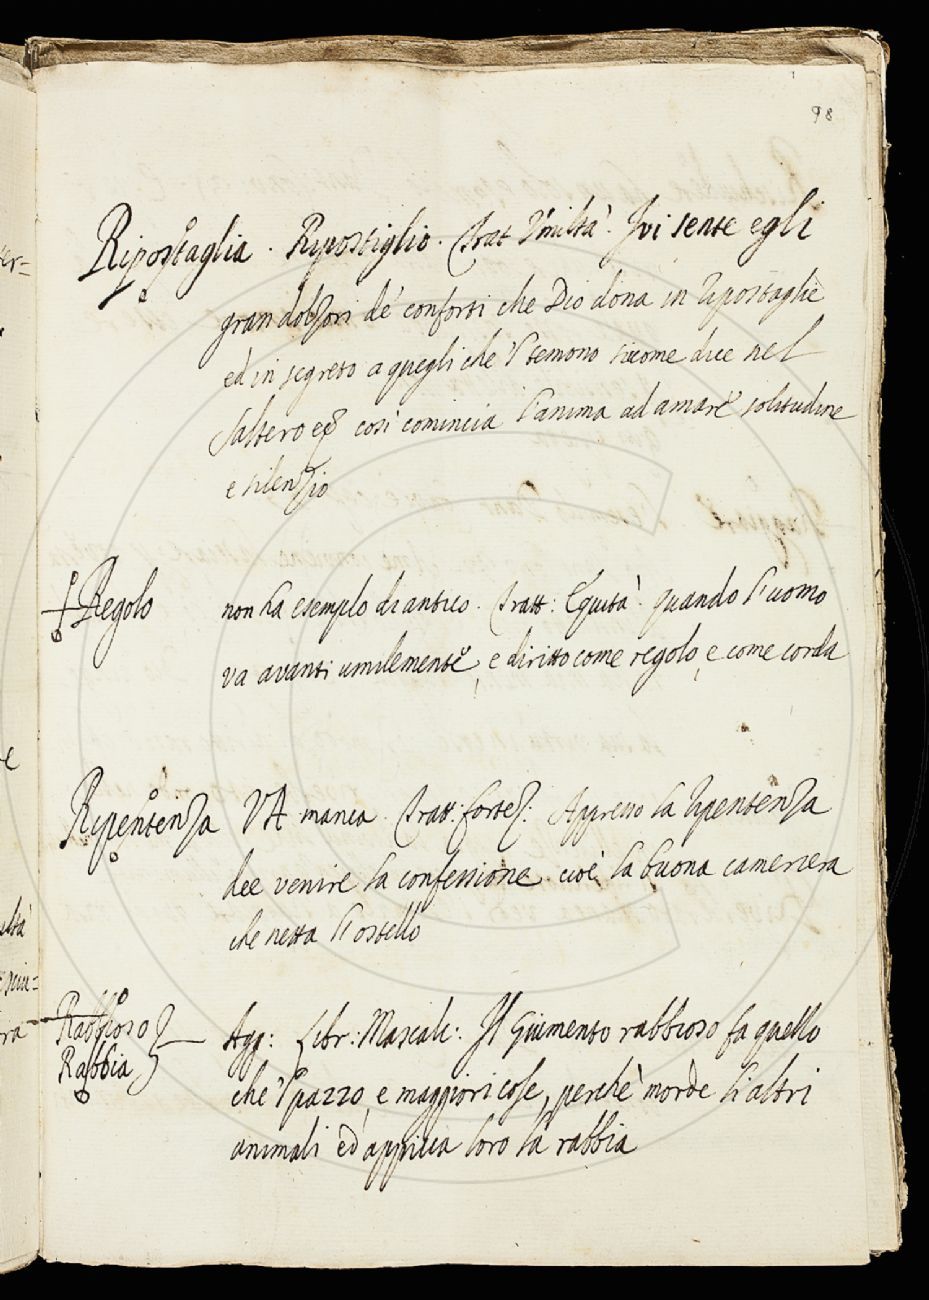 98
Ripostaglia. Ripostiglio. Trat Umiltà. Ivi sente egli
gran dolzori de' conforti che Dio dona in ripostaglie
ed in segreto a quegli che 'l temono sicome dice nel
saltero e così comincia l'anima ad amare solitudine
e silenzio
Regolo non ha esemplo di antico. Tratt: Equità. quando l'uomo
va avanti umilemente, e diritto come regolo, e come corda
Ripentenza VA manca. Tratt: fortez: Appresso la ripentenza
dee venire la confessione. cioè la buona cameriera
che netta l'ostello
Rabbioso
Rabbia
Agg: Libr: Mascalc: Il Giumento rabbioso fa quello
che 'l pazzo, e maggiori cose, perchè morde li altri
animali ed appicca loro la rabbia